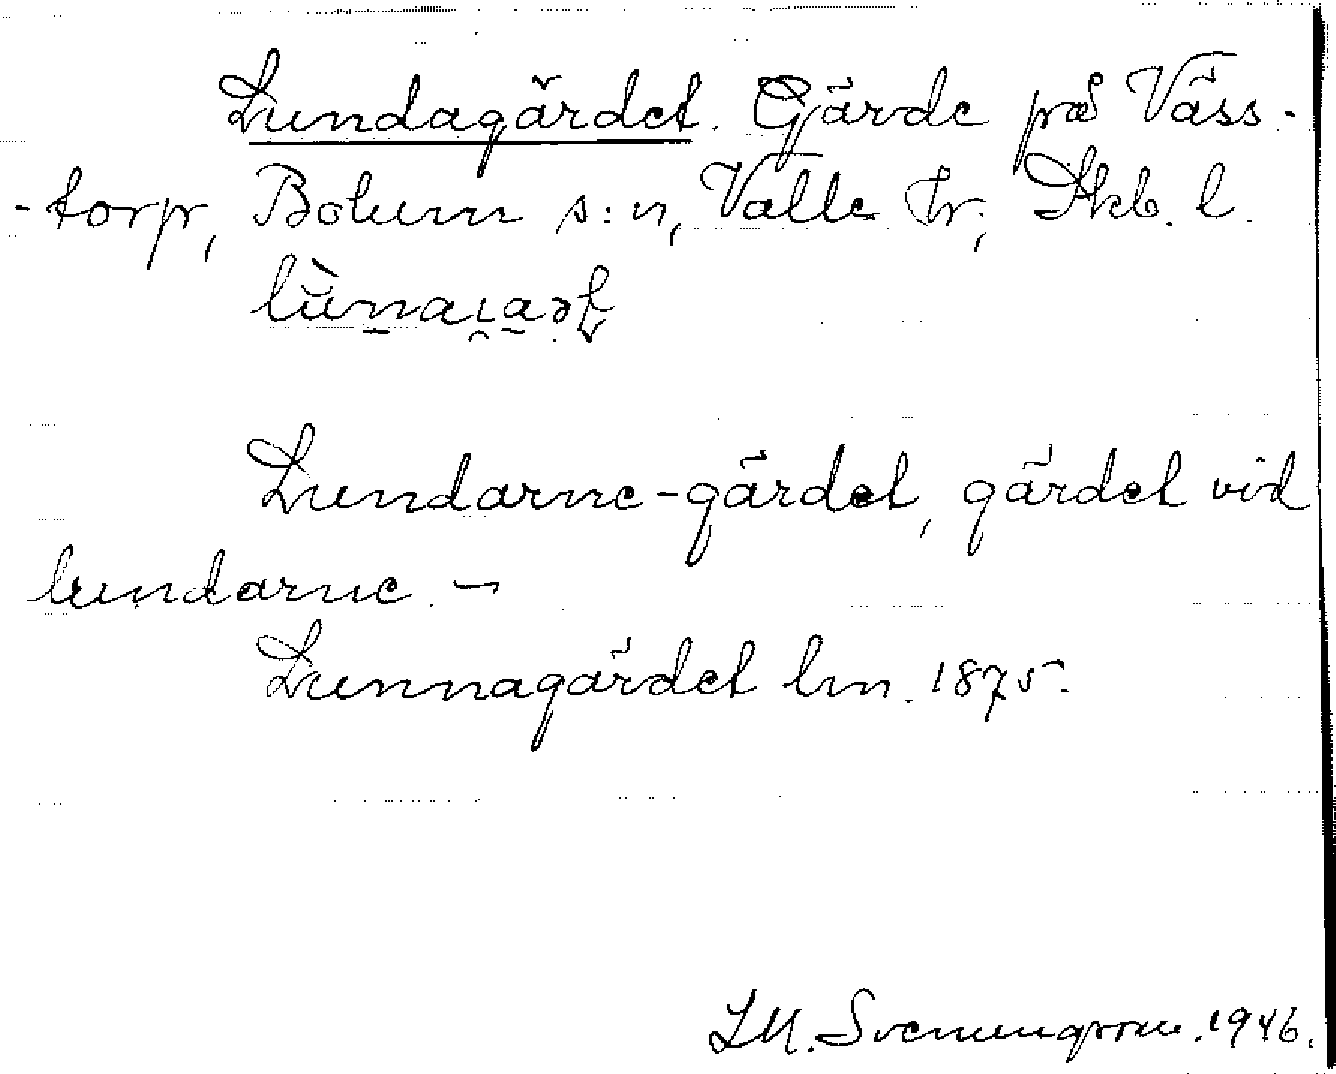 Lundagärdet. Gärde på Väss-
-torp, Bolum s:n, Valle hr, Skb. l.
Lundarne-gärdet, gärdet vid
lundarne. –
Lunnagärdet lm. 1875.
Svenungsson. 1946.